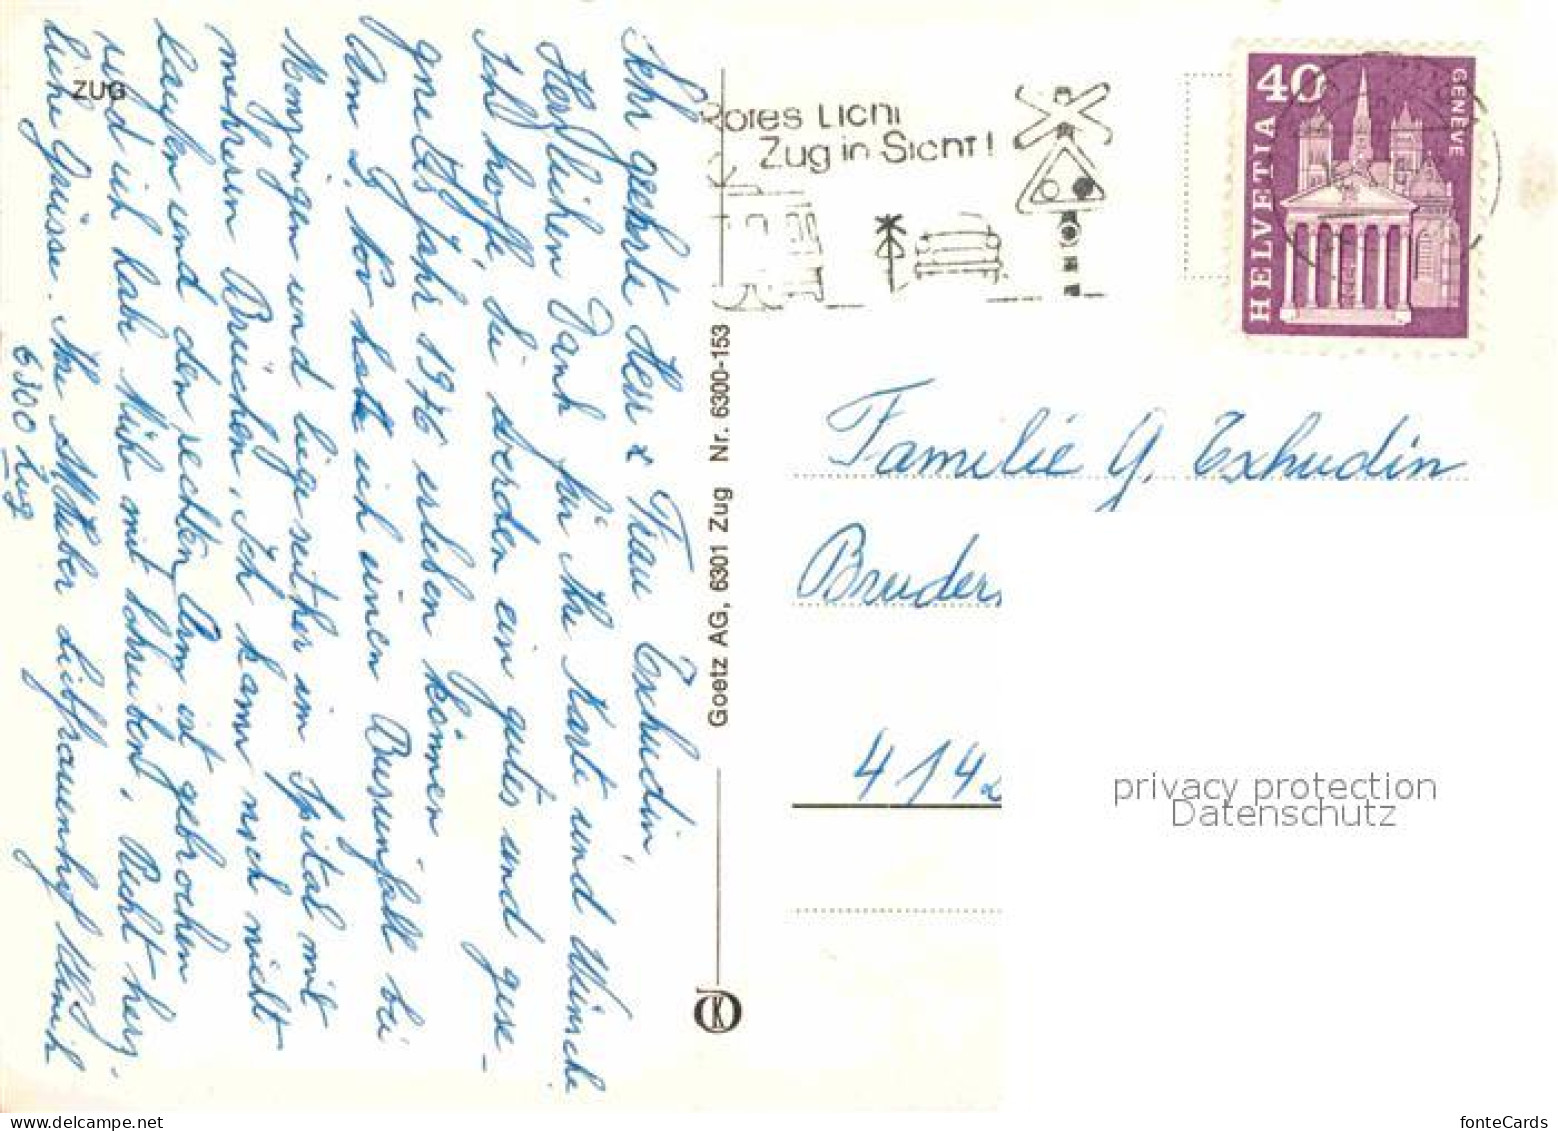 ZUG
Sehr geehrte Herr & Frau Exhudin,
Herzlichen Dank für Ihre Karte und Wünsche
Ich hoffe, Sie werden ein gutes und gese-
gnetes Jahr 1976 erleben können
Am 5. Nov hatte ich einen Busunfall bei
und liege seither im Spital mit
mehreren Brüchen. Ich kann noch nicht
laufen und den rechten Arm ist gebrochen
und ich habe Mühe mit schreiben. Recht herz-
liche Grüsse. Ihre Huber Liebfrauenhof
6300 Zug
Goetz AG, 6301 Zug Nr. 6300-153
Rotes Licht
Zug in Sicht!
40
GENÈVE
HELVETIA
Familie G. Exhudin
Bruder
414
privacy protection
Datenschutz
fonteCards